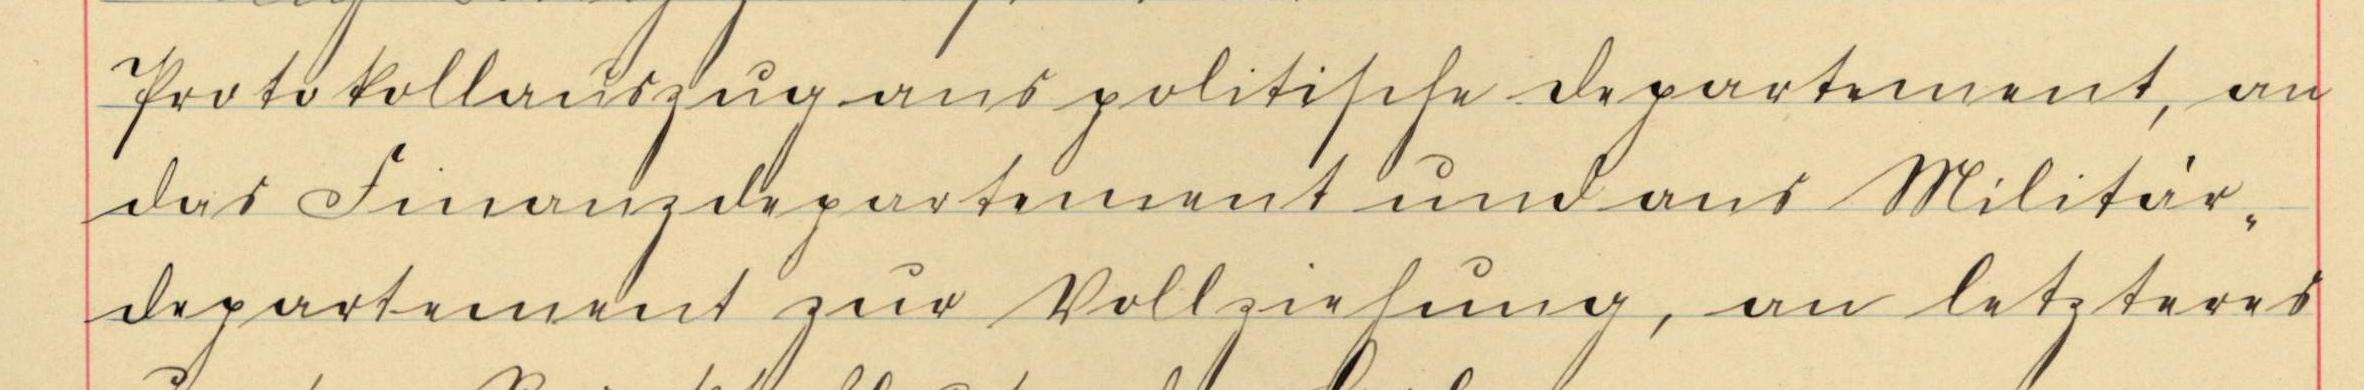 Protokollauszug ans politische Departement, an
das Finanzdepartement und ans Militär-
departement zur Vollziehung, an letzteres